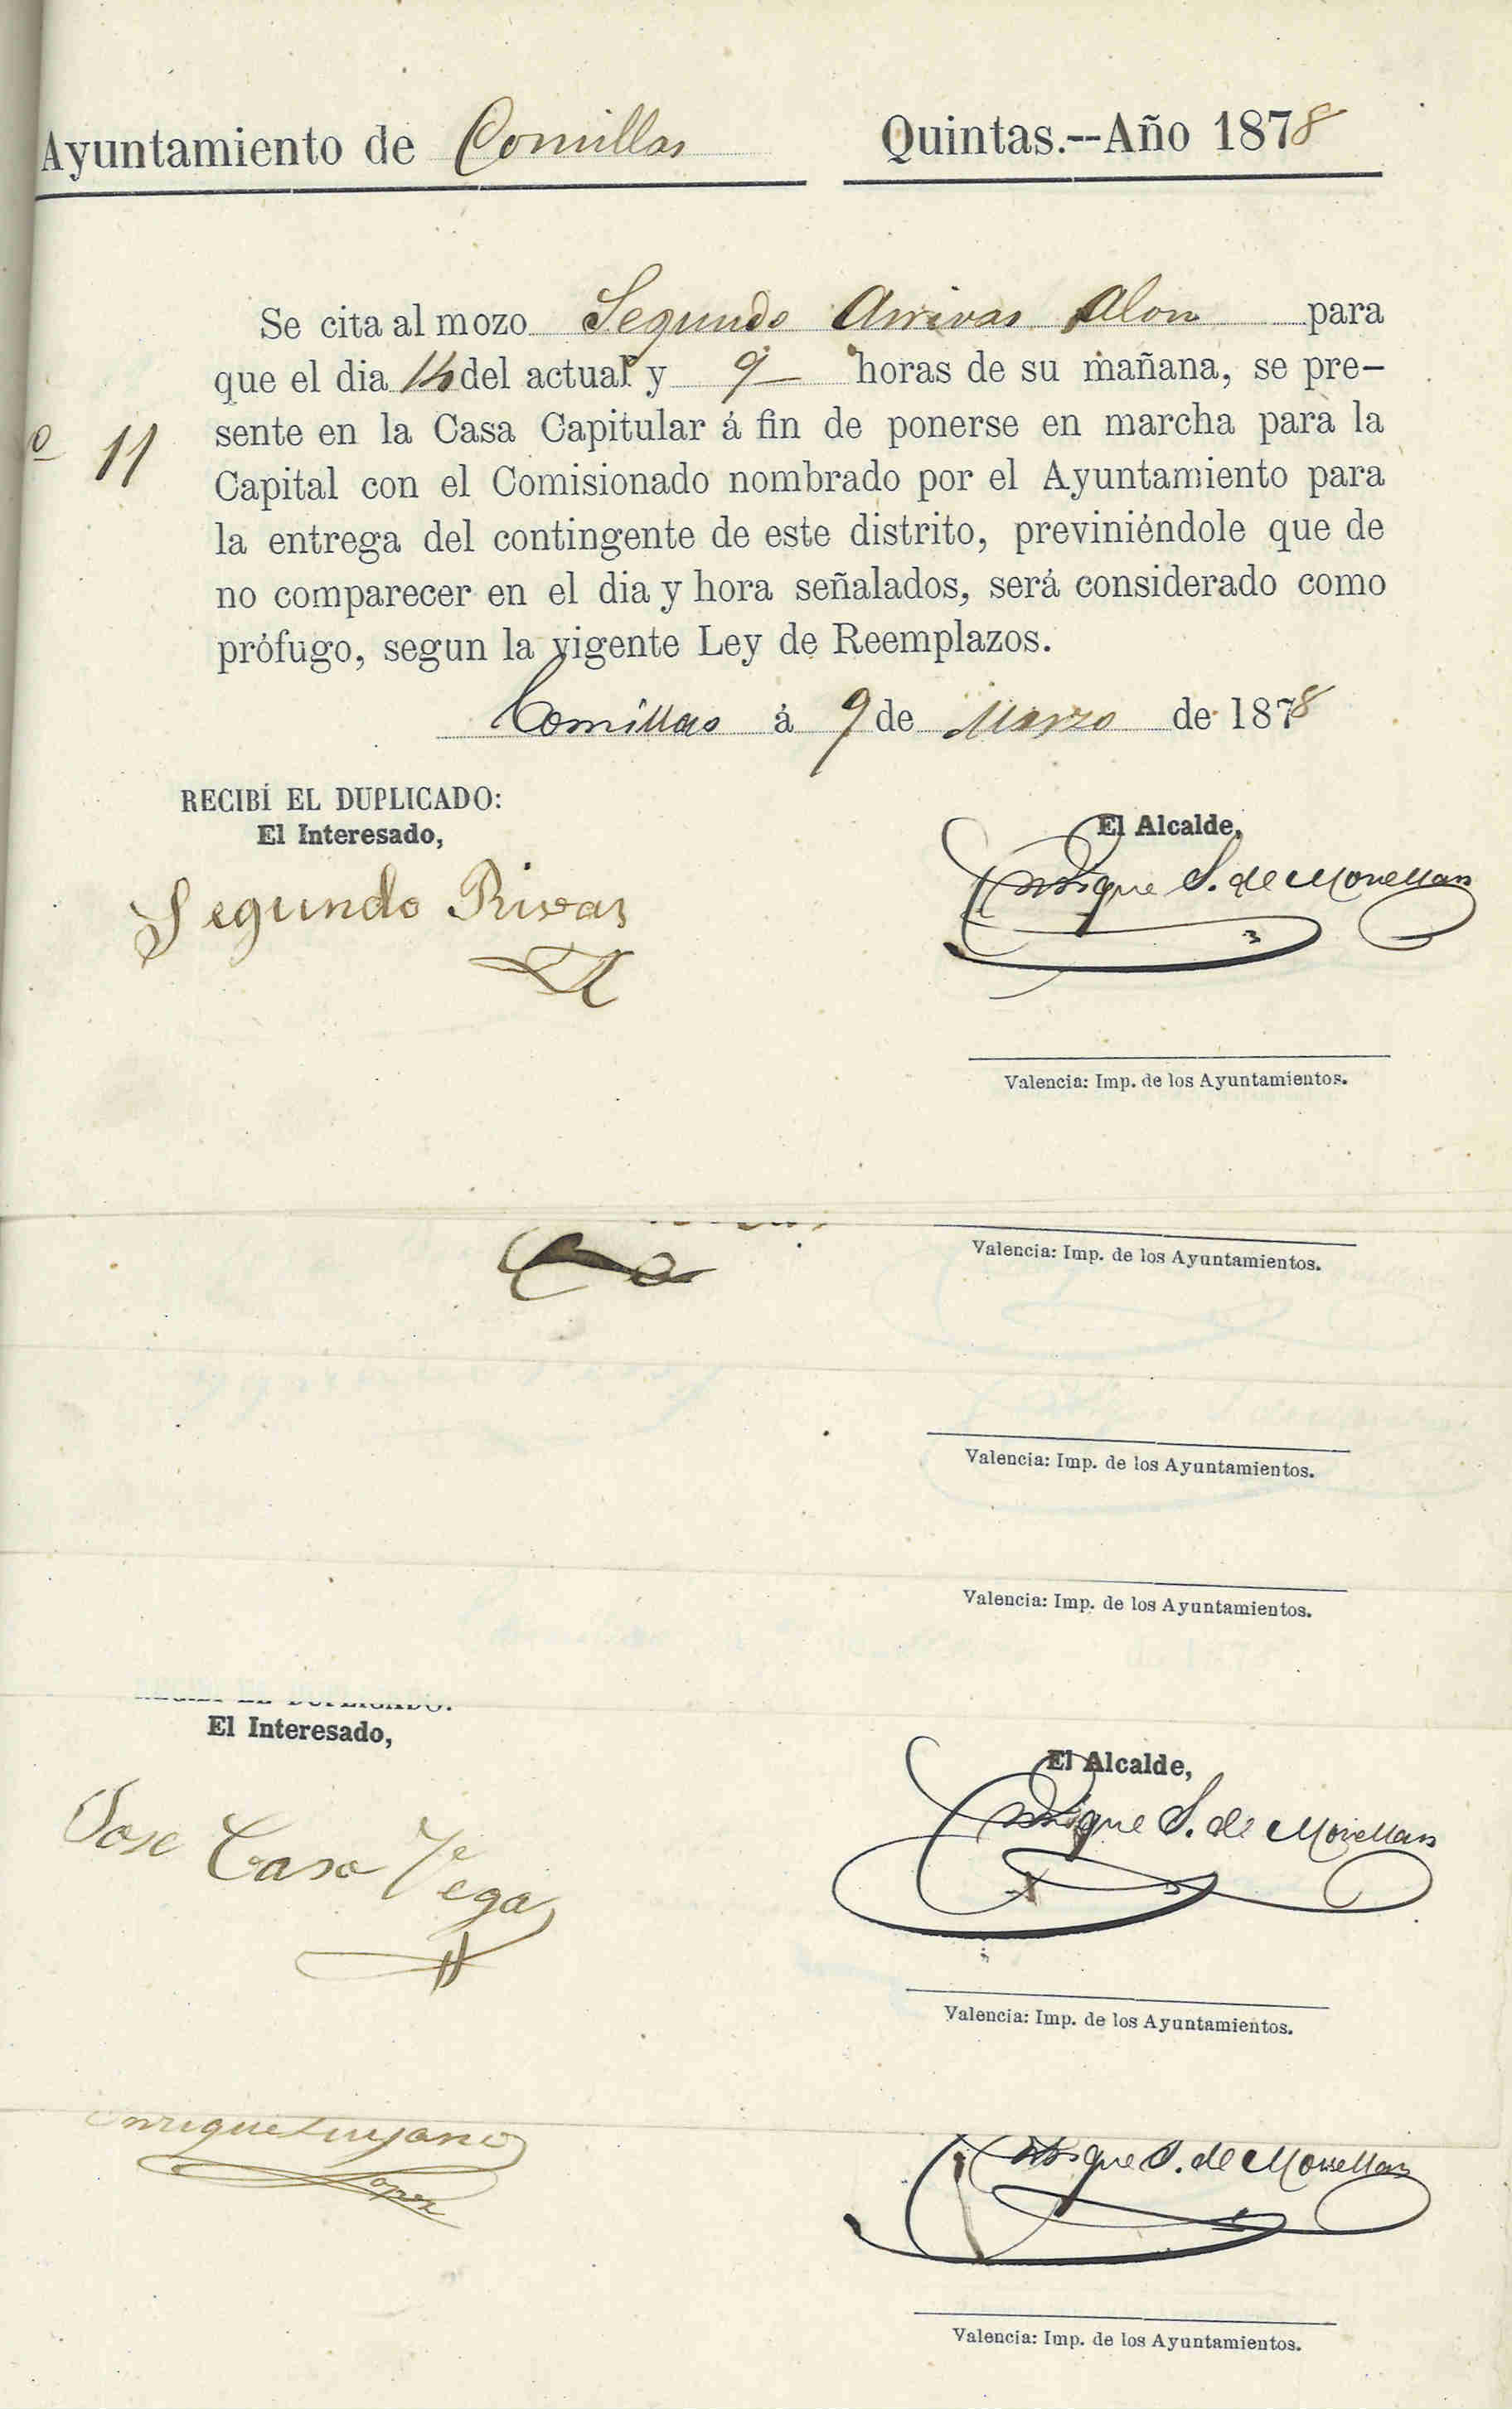 Ayuntamiento de Comillas Quintas.--Año 1878
Se cita al mozo Segundo Arrivas Alon para
que el dia 14 del actual y 9 horas de su mañana, se pre-
sente en la Casa Capitular á fin de ponerse en marcha para la
º 11
Capital con el Comisionado nombrado por el Ayuntamiento para
la entrega del contingente de este distrito, previniéndole que de
no comparecer en el dia y hora señalados, será considerado como
prófugo, segun la vigente Ley de Reemplazos.
Comillas á 9 de Marzo de 1878
RECIBÍ EL DUPLICADO:
El Interesado,
El Alcalde,
Segundo Rivas
Enrique S. de Movellan
Valencia: Imp. de los Ayuntamientos.
Valencia: Imp. de los Ayuntamientos.
Valencia: Imp. de los Ayuntamientos.
Valencia: Imp. de los Ayuntamientos.
RECIBÍ EL DUPLICADO:
El Interesado,
El Alcalde,
Jose Caso Vega
Enrique S. de Movellan
Valencia: Imp. de los Ayuntamientos.
Enrique Luyano
Lopez
Enrique S. de Movellan
Valencia: Imp. de los Ayuntamientos.